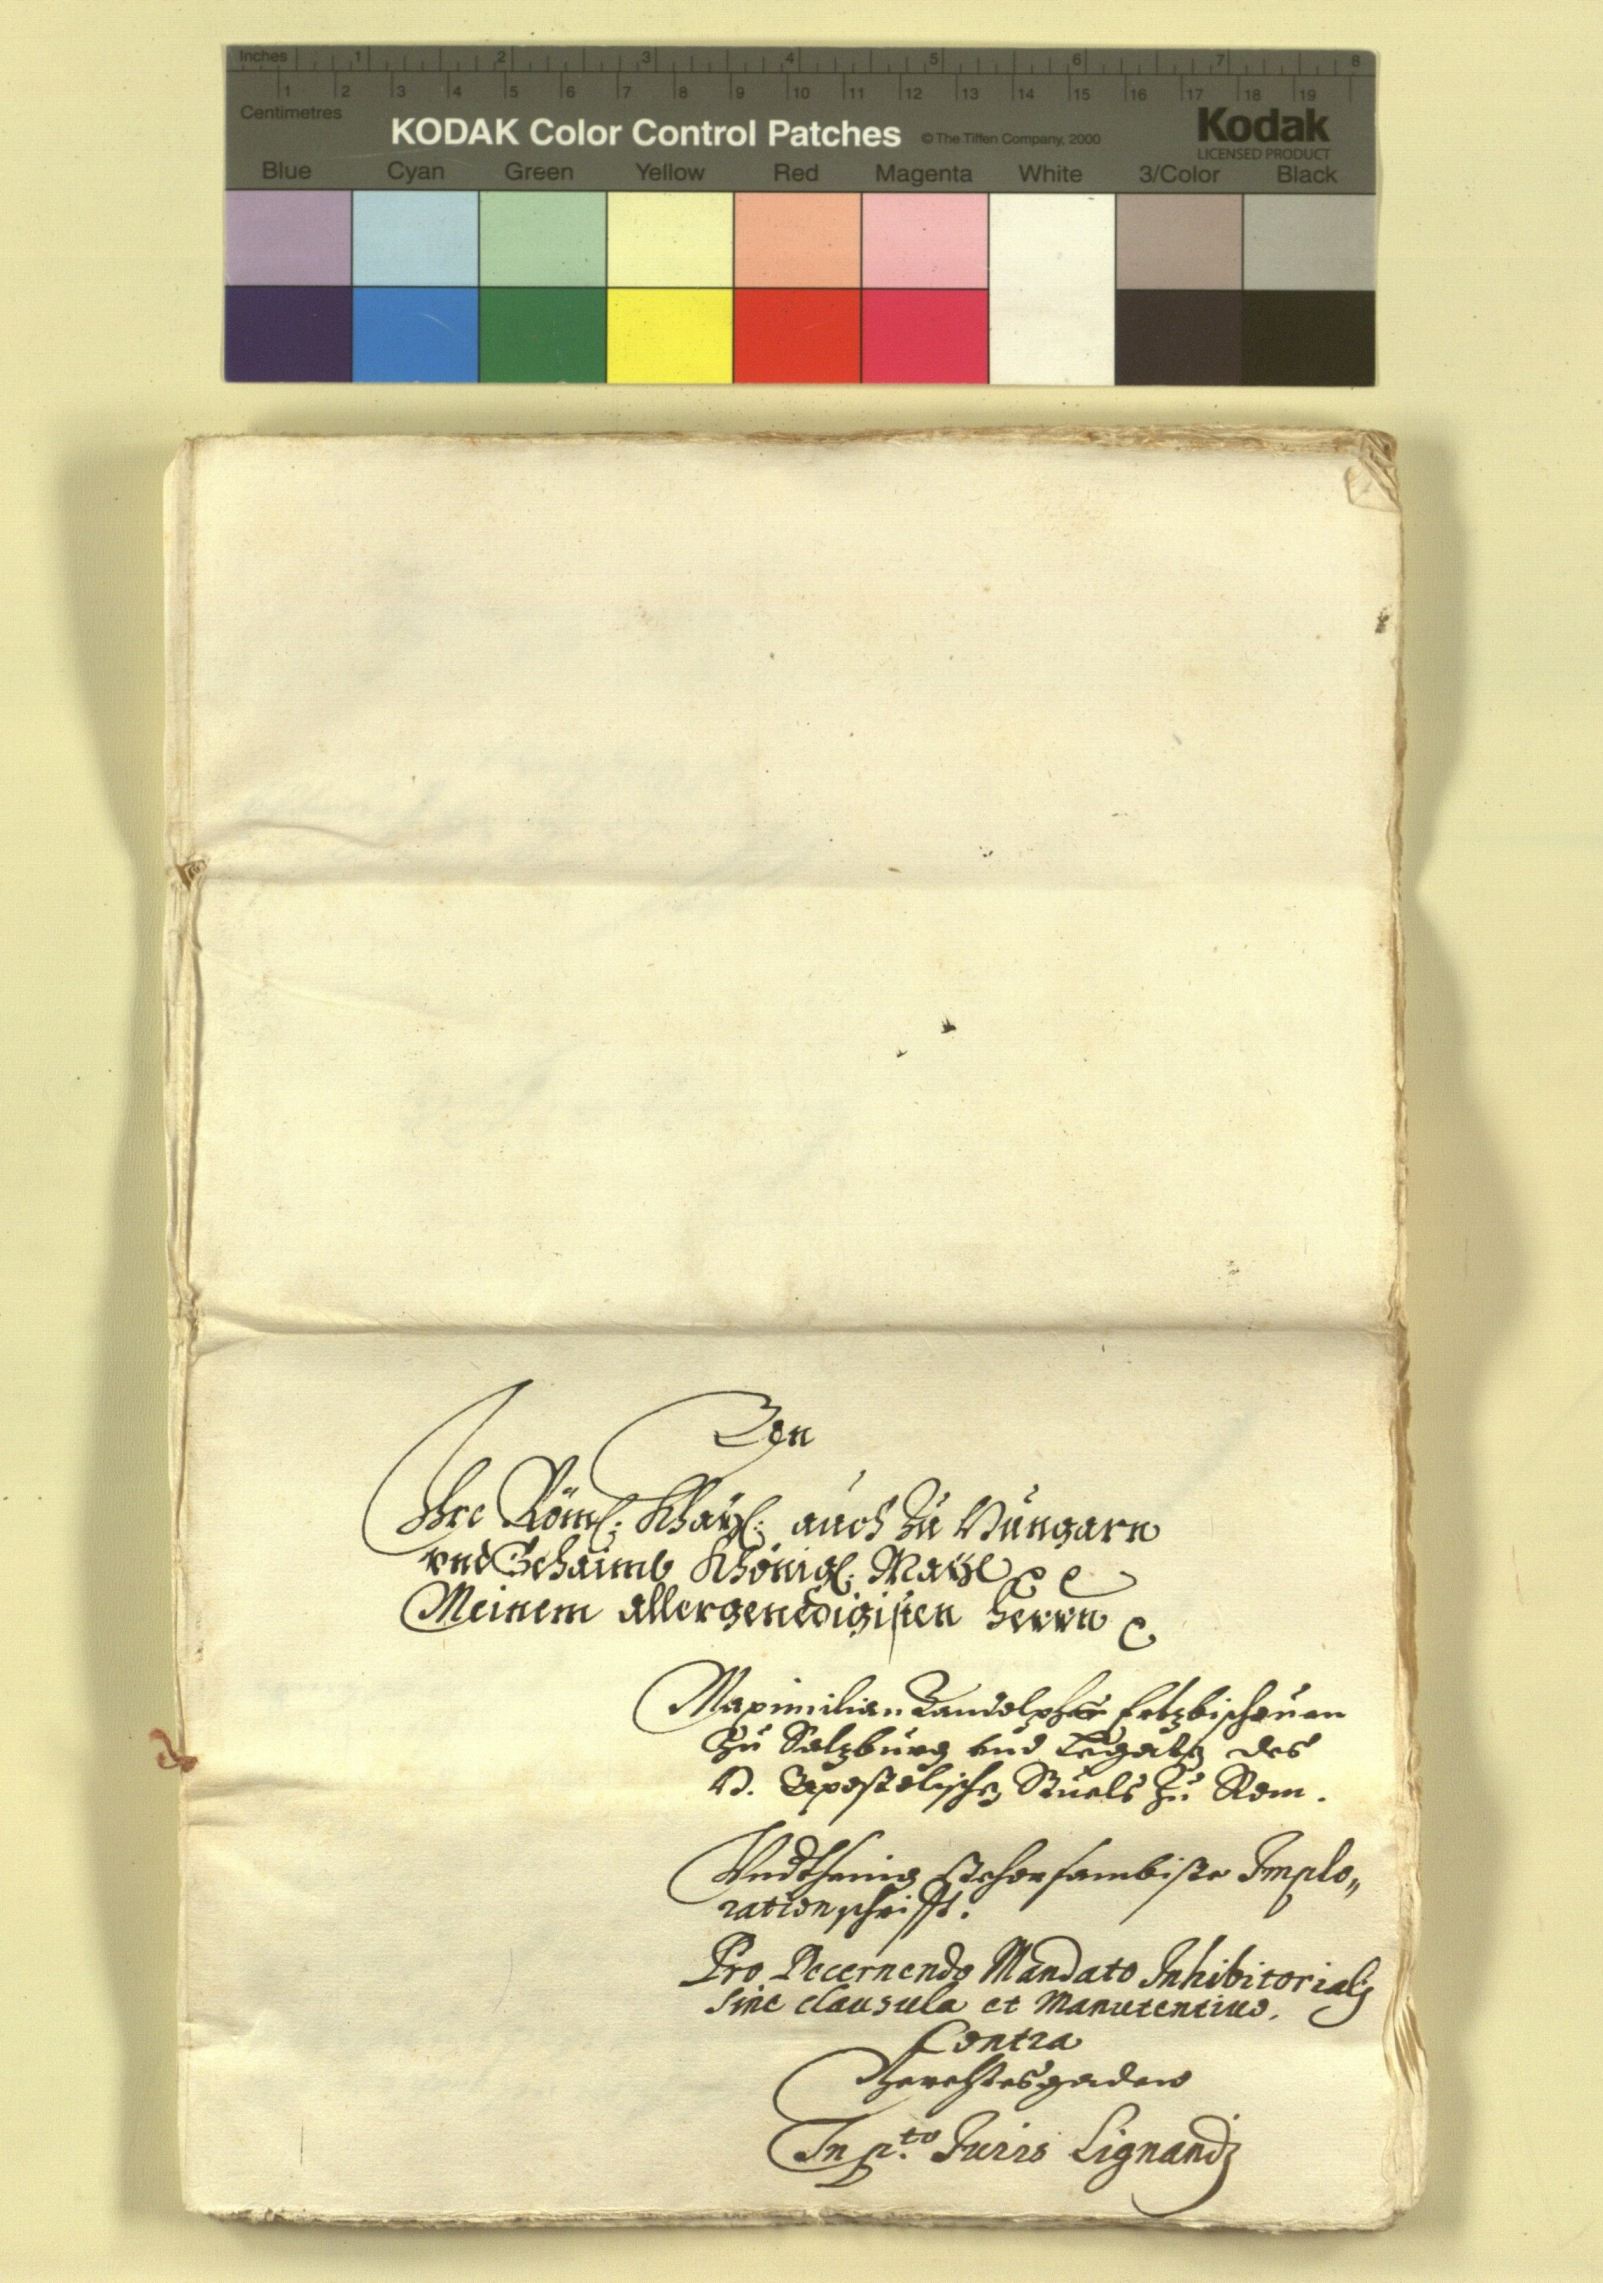 Inches 1 2 3 4 5 6 7 8
1 2 3 4 5 6 7 8 9 10 11 12 13 14 15 16 17 18 19
Centimetres
KODAK Color Control Patches © The Tiffen Company, 2000 Kodak
LICENSED PRODUCT
Blue Cyan Green Yellow Red Magenta White 3/Color Black
Ihre Röml: Khayl: auch zu Vungarn
vnd Behaimb Khönigl: May:
Meinem allergenedigisten Herrn
Maximilian Gandolphen Ertzbischouen
zu Salzburg vnd Legaten des
H. Apostolischen Stuels zu Rom.
Vndthenig gehorsambiste Implo„
rationschrifft.
Pro Decernendo Mandato Inhibitorialj
sine clausula et Manutentiuo.
Contra
Berchtesgaden
In p.to Juris Lignandj